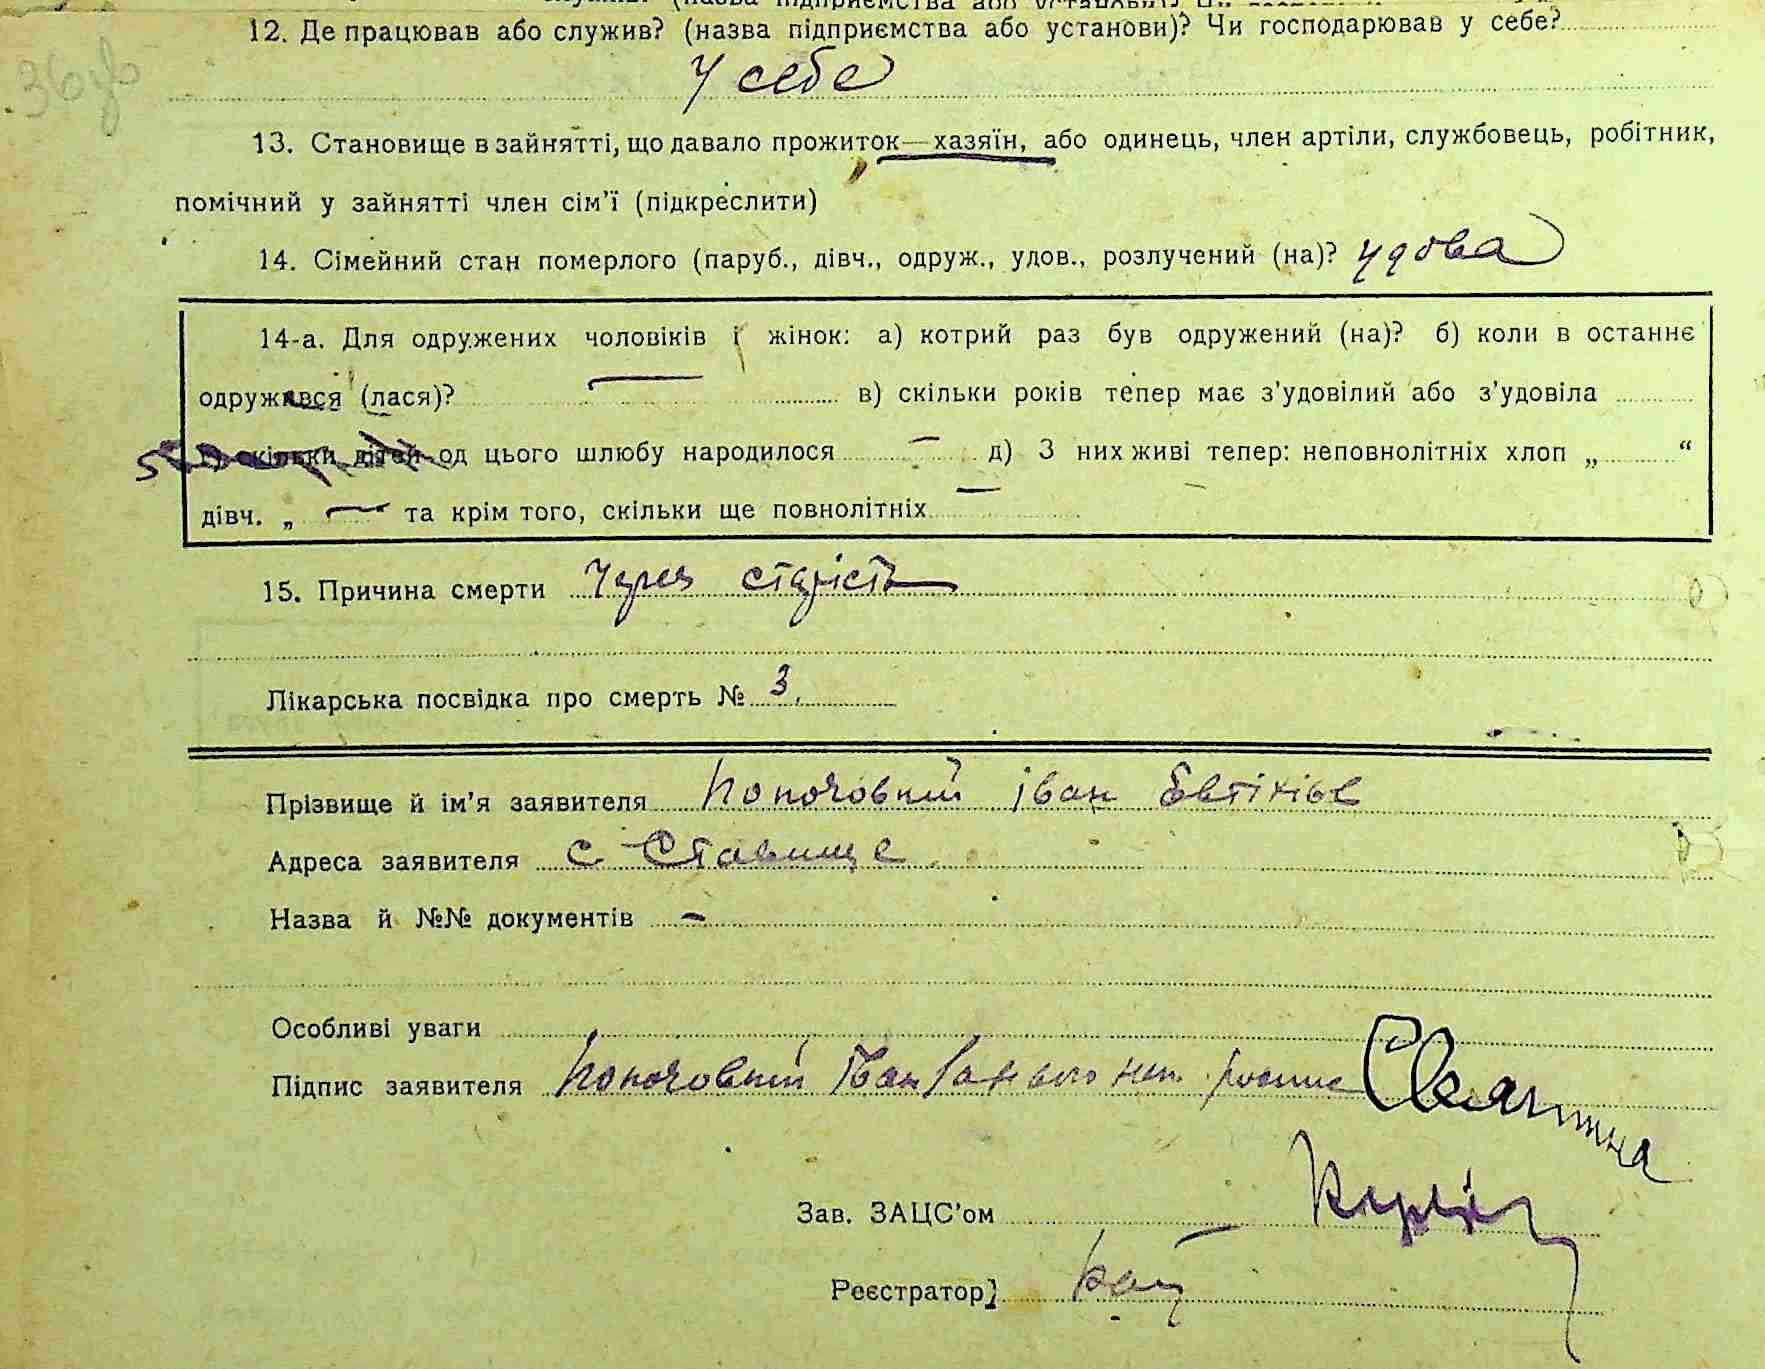 12. Де працював або служив? (назва підприємства або установи)? Чи господарював у себе?
у себе
13. Становище в зайнятті, що давало прожиток—хазяїн, або одинець, член артіли, службовець, робітник,
помічний у зайнятті член сім'ї (підкреслити)
14. Сімейний стан померлого (паруб., дівч., одруж., удов., розлучений (на)? удова
14-а. Для одружених чоловіків і жінок: а) котрий раз був одружений (на)? б) коли в останнє
одружився (лася)? — в) скільки років тепер має з'удовілий або з'удовіла
г) скільки дітей од цього шлюбу народилося — д) З них живі тепер: неповнолітніх хлоп „ “
дівч. „ — та крім того, скільки ще повнолітніх —
15. Причина смерти Через старість
Лікарська посвідка про смерть № 3.
Прізвище й ім'я заявителя Іван
Адреса заявителя с. Ставище
Назва й №№ документів –
Особливі уваги
Підпис заявителя Іван
Зав. ЗАЦС'ом
Реєстратор